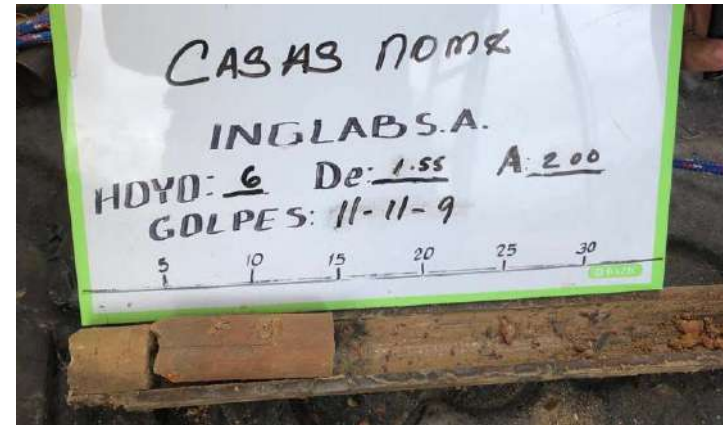 CASAS NOMX
INGLAB S.A.
HOYO: 6 De: 1.55 A: 200
GOLPES: 11-11-9
5 10 15 20 25 30